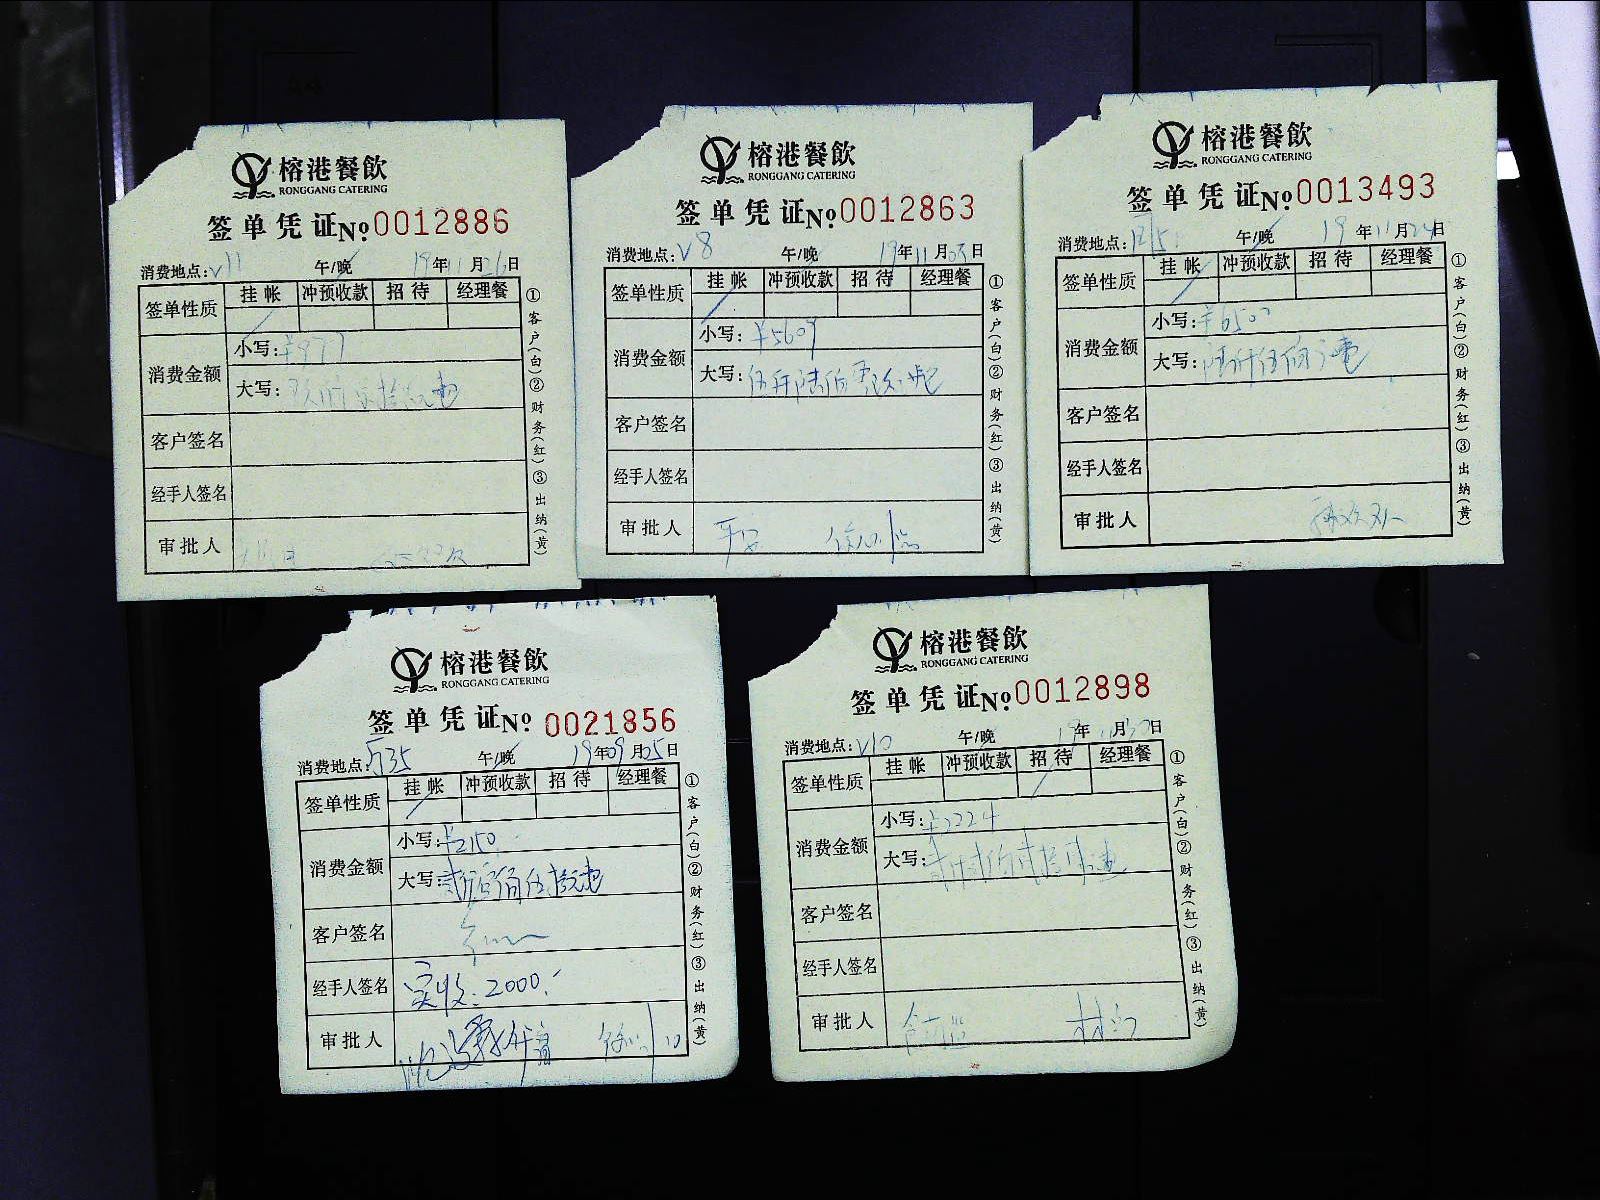 榕港餐飲
RONGGANG CATERING
签单凭证 No 0012886
消费地点: V11 午/晚 19年11月26日
签单性质 挂帐 冲预收款 招待 经理餐
消费金额 小写: ¥977
大写:
客户签名
经手人签名
审批人
①客户(白)②财务(红)③出纳(黄)
榕港餐飲
RONGGANG CATERING
签单凭证 No 0012863
消费地点: V8 午/晚 19年11月03日
签单性质 挂帐 冲预收款 招待 经理餐
消费金额 小写: ¥5609
大写: 伍仟陆佰零玖元
客户签名
经手人签名
审批人
①客户(白)②财务(红)③出纳(黄)
榕港餐飲
RONGGANG CATERING
签单凭证 No 0013493
消费地点: 午/晚 19年11月24日
签单性质 挂帐 冲预收款 招待 经理餐
消费金额 小写: ¥6500
大写: 陆仟伍佰元
客户签名
经手人签名
审批人
①客户(白)②财务(红)③出纳(黄)
榕港餐飲
RONGGANG CATERING
签单凭证 No 0021856
消费地点: 厅35 午/晚 19年09月05日
签单性质 挂帐 冲预收款 招待 经理餐
消费金额 小写: ¥2150
大写: 贰仟壹佰伍拾元
客户签名
经手人签名 实收: 2000.
审批人
①客户(白)②财务(红)③出纳(黄)
榕港餐飲
RONGGANG CATERING
签单凭证 No 0012898
消费地点: V10 午/晚 19年11月30日
签单性质 挂帐 冲预收款 招待 经理餐
消费金额 小写: ¥2224
大写: 贰仟贰佰贰拾肆元
客户签名
经手人签名
审批人
①客户(白)②财务(红)③出纳(黄)